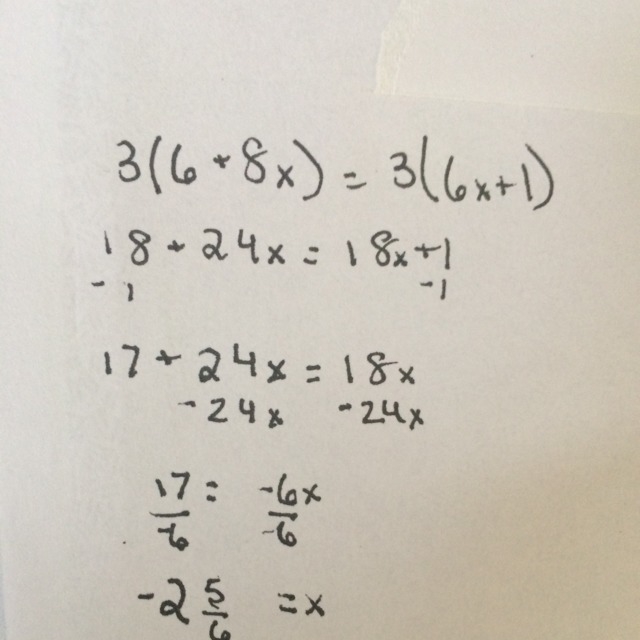 3(6+8x) = 3(6x+1)
18+24x = 18x+1
-1 -1
17+24x = 18x
-24x -24x
17/-6 = -6x/-6
-2 5/6 = x